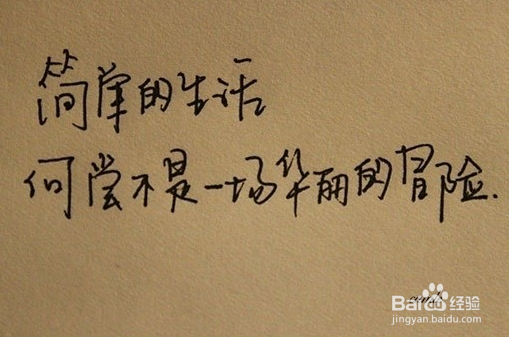 简单的生活
何尝不是一场华丽的冒险.
Baidu经验
jingyan.baidu.com